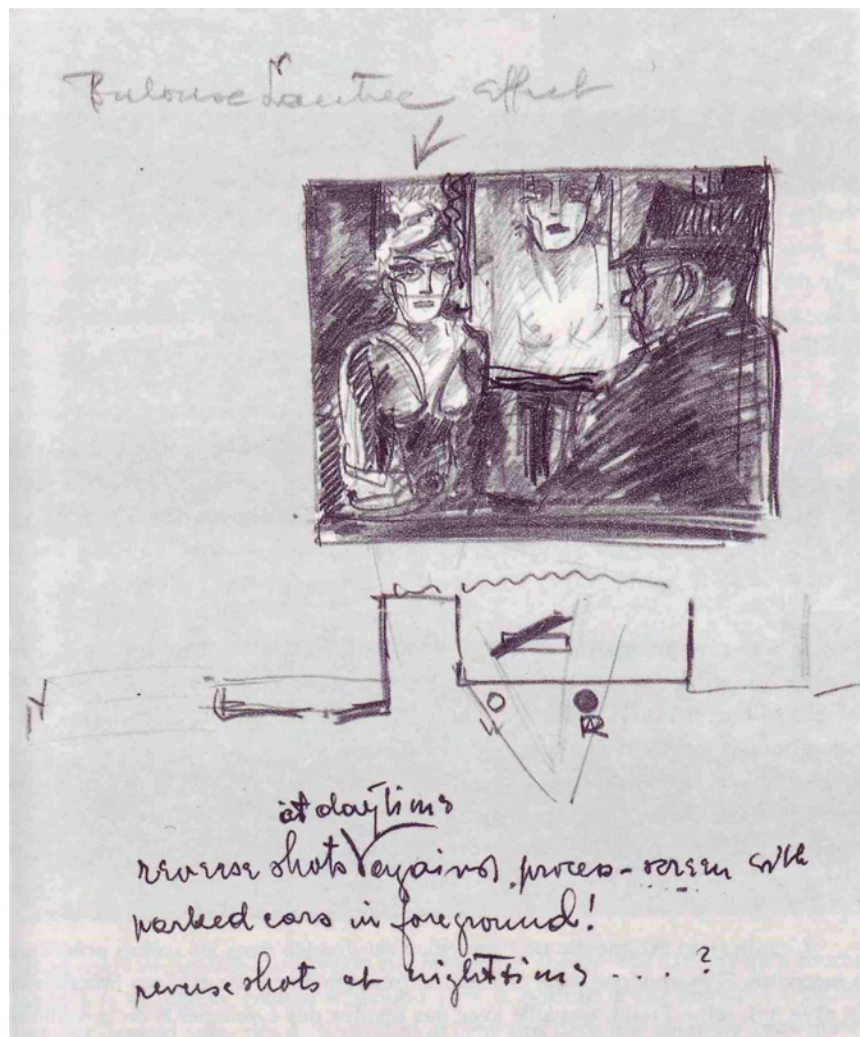 Toulouse Lautrec effect
W
R
at daytime
reverse shots against process-screen with
parked cars in foreground!
reverse shots at nighttime .... ?